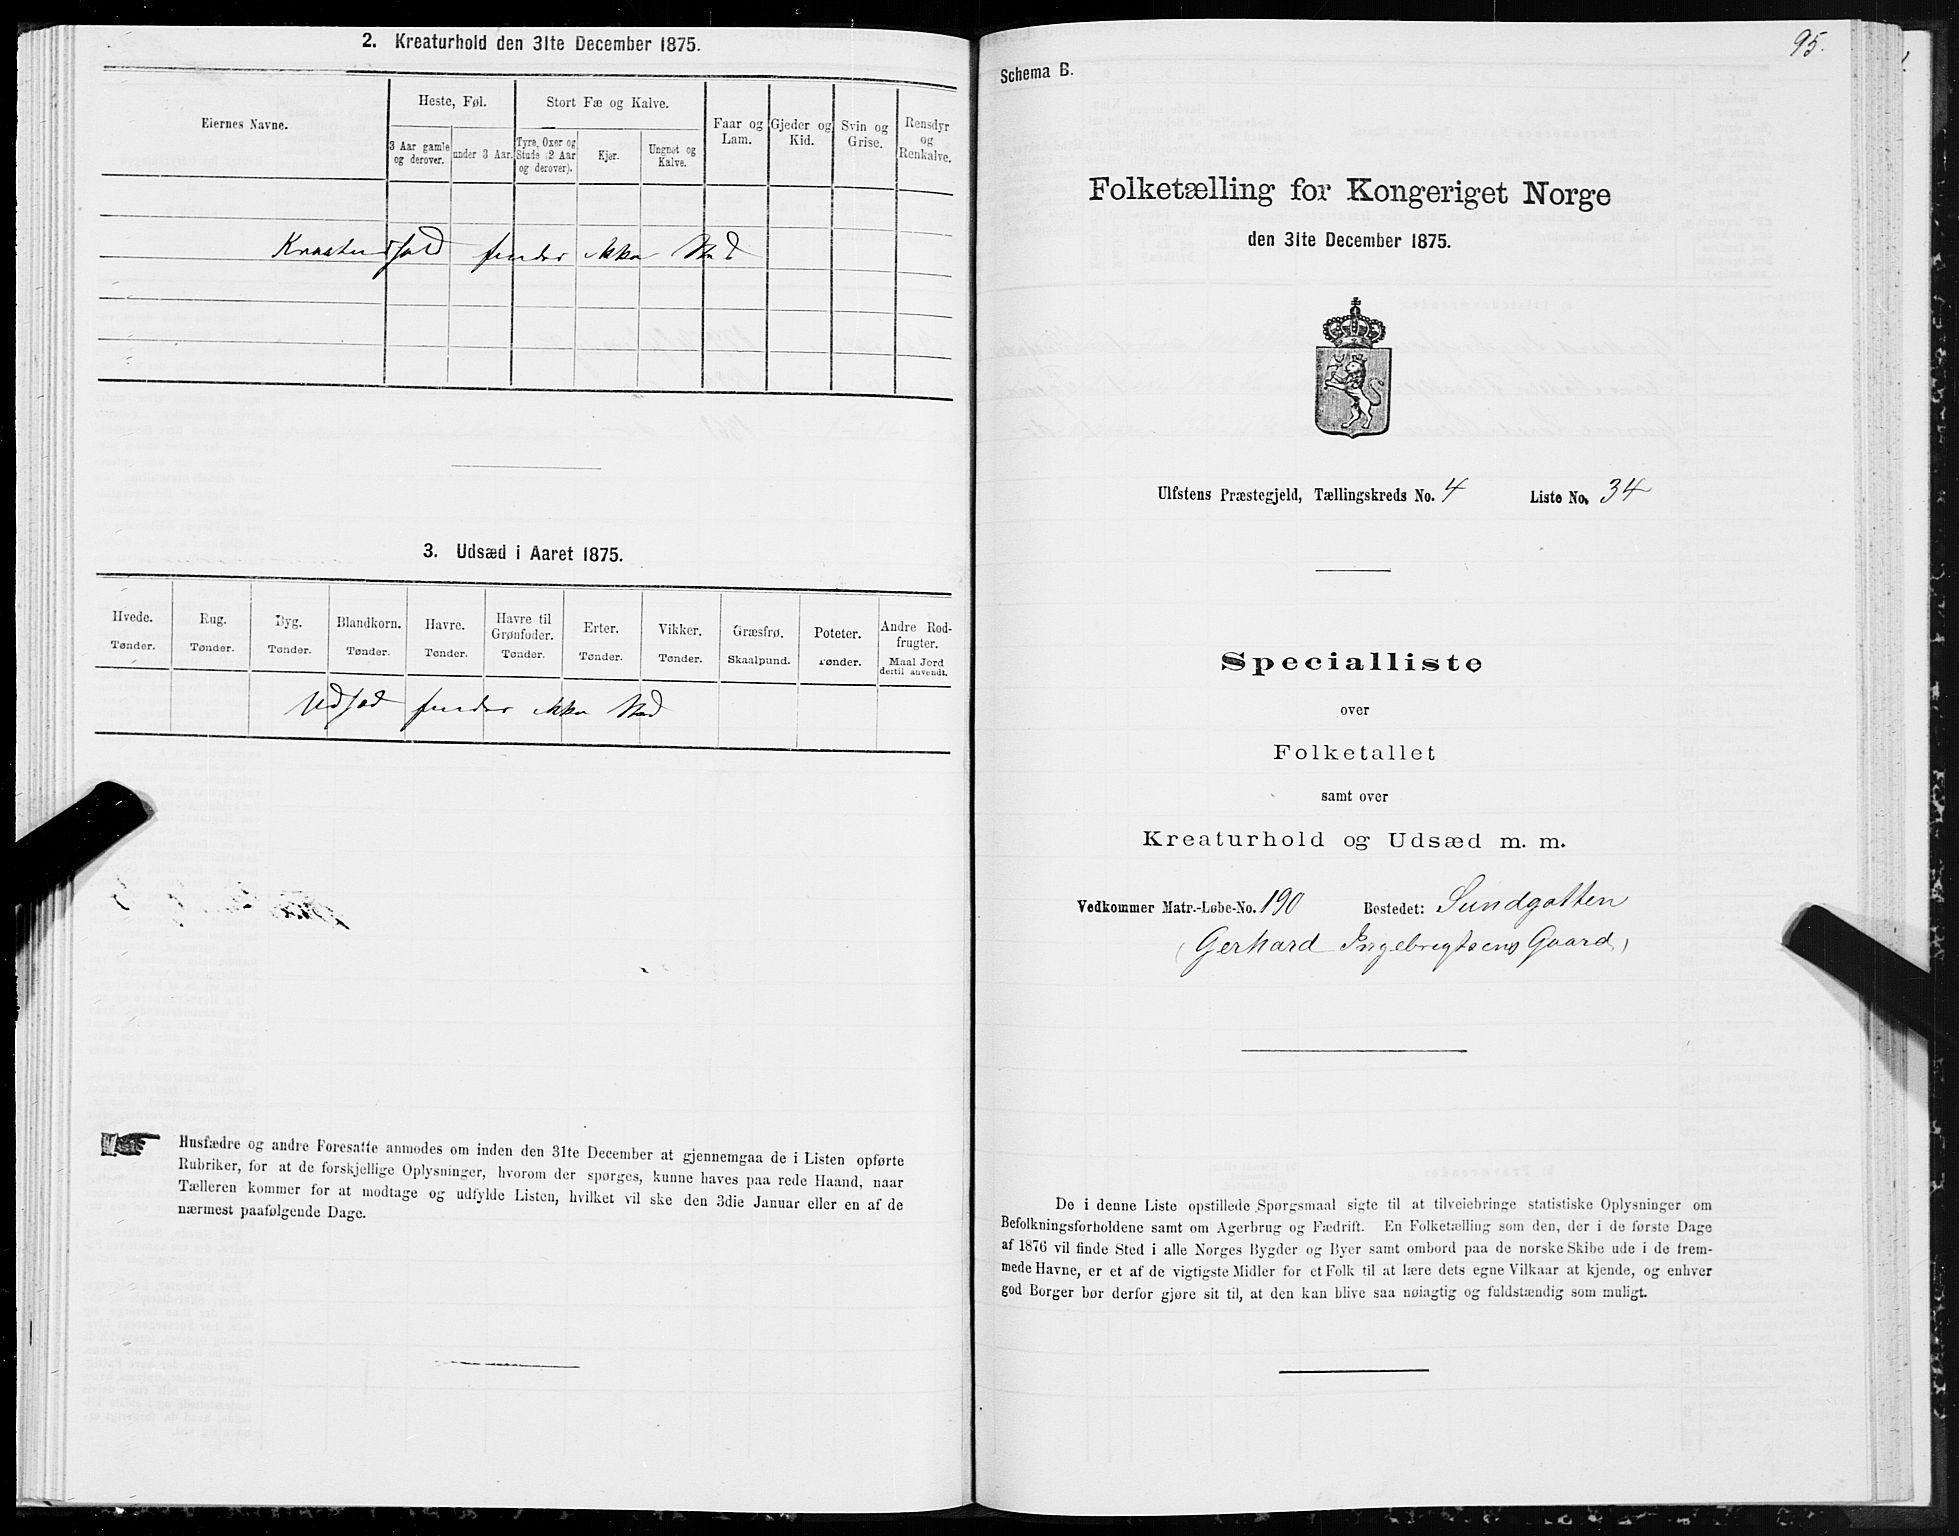 2. Kreaturhold den 31te December 1875.
Eiernes Navne.
Heste, Føl.
Stort Fæ og Kalve.
Faar og Lam.
Gjeder og Kid.
Svin og Grise.
Rensdyr og Renkalve.
3 Aar gamle og derover.
under 3 Aar.
Tyre, Oxer og Stude (2 Aar og derover).
Kjør.
Ungnøt og Kalve.
Kreaturhold finder ikke Sted
3. Udsæd i Aaret 1875.
Hvede. Rug. Byg. Blandkorn. Havre. Havre til Grønfoder. Erter. Vikker. Græsfrø. Poteter. Andre Rodfrugter.
Tønder. Tønder. Tønder. Tønder. Tønder. Tønder. Tønder. Tønder. Skaalpund. Tønder. Maal Jord dertil anvendt.
Udsæd finder ikke Sted
Husfædre og andre Foresatte anmodes om inden den 31te December at gjennemgaa de i Listen opførte
Rubriker, for at de forskjellige Oplysninger, hvorom der spørges, kunne haves paa rede Haand, naar
Tælleren kommer for at modtage og udfylde Listen, hvilket vil ske den 3die Januar eller en af de
nærmest paafølgende Dage.
95.
Schema B.
Folketælling for Kongeriget Norge
den 31te December 1875.
Ulfstens Præstegjeld, Tællingskreds No. 4 Liste No. 34
Specialliste
over
Folketallet
samt over
Kreaturhold og Udsæd m. m.
Vedkommer Matr.-Løbe-No. 190 Bostedet: Sundgotten
(Gerhard Ingebrigtsens Gaard)
De i denne Liste opstillede Spørgsmaal sigte til at tilveiebringe statistiske Oplysninger om
Befolkningsforholdene samt om Agerbrug og Fædrift. En Folketælling som den, der i de første Dage
af 1876 vil finde Sted i alle Norges Bygder og Byer samt ombord paa de norske Skibe ude i de frem-
mede Havne, er et af de vigtigste Midler for et Folk til at lære dets egne Vilkaar at kjende, og enhver
god Borger bør derfor gjøre sit til, at den kan blive saa nøiagtig og fuldstændig som muligt.